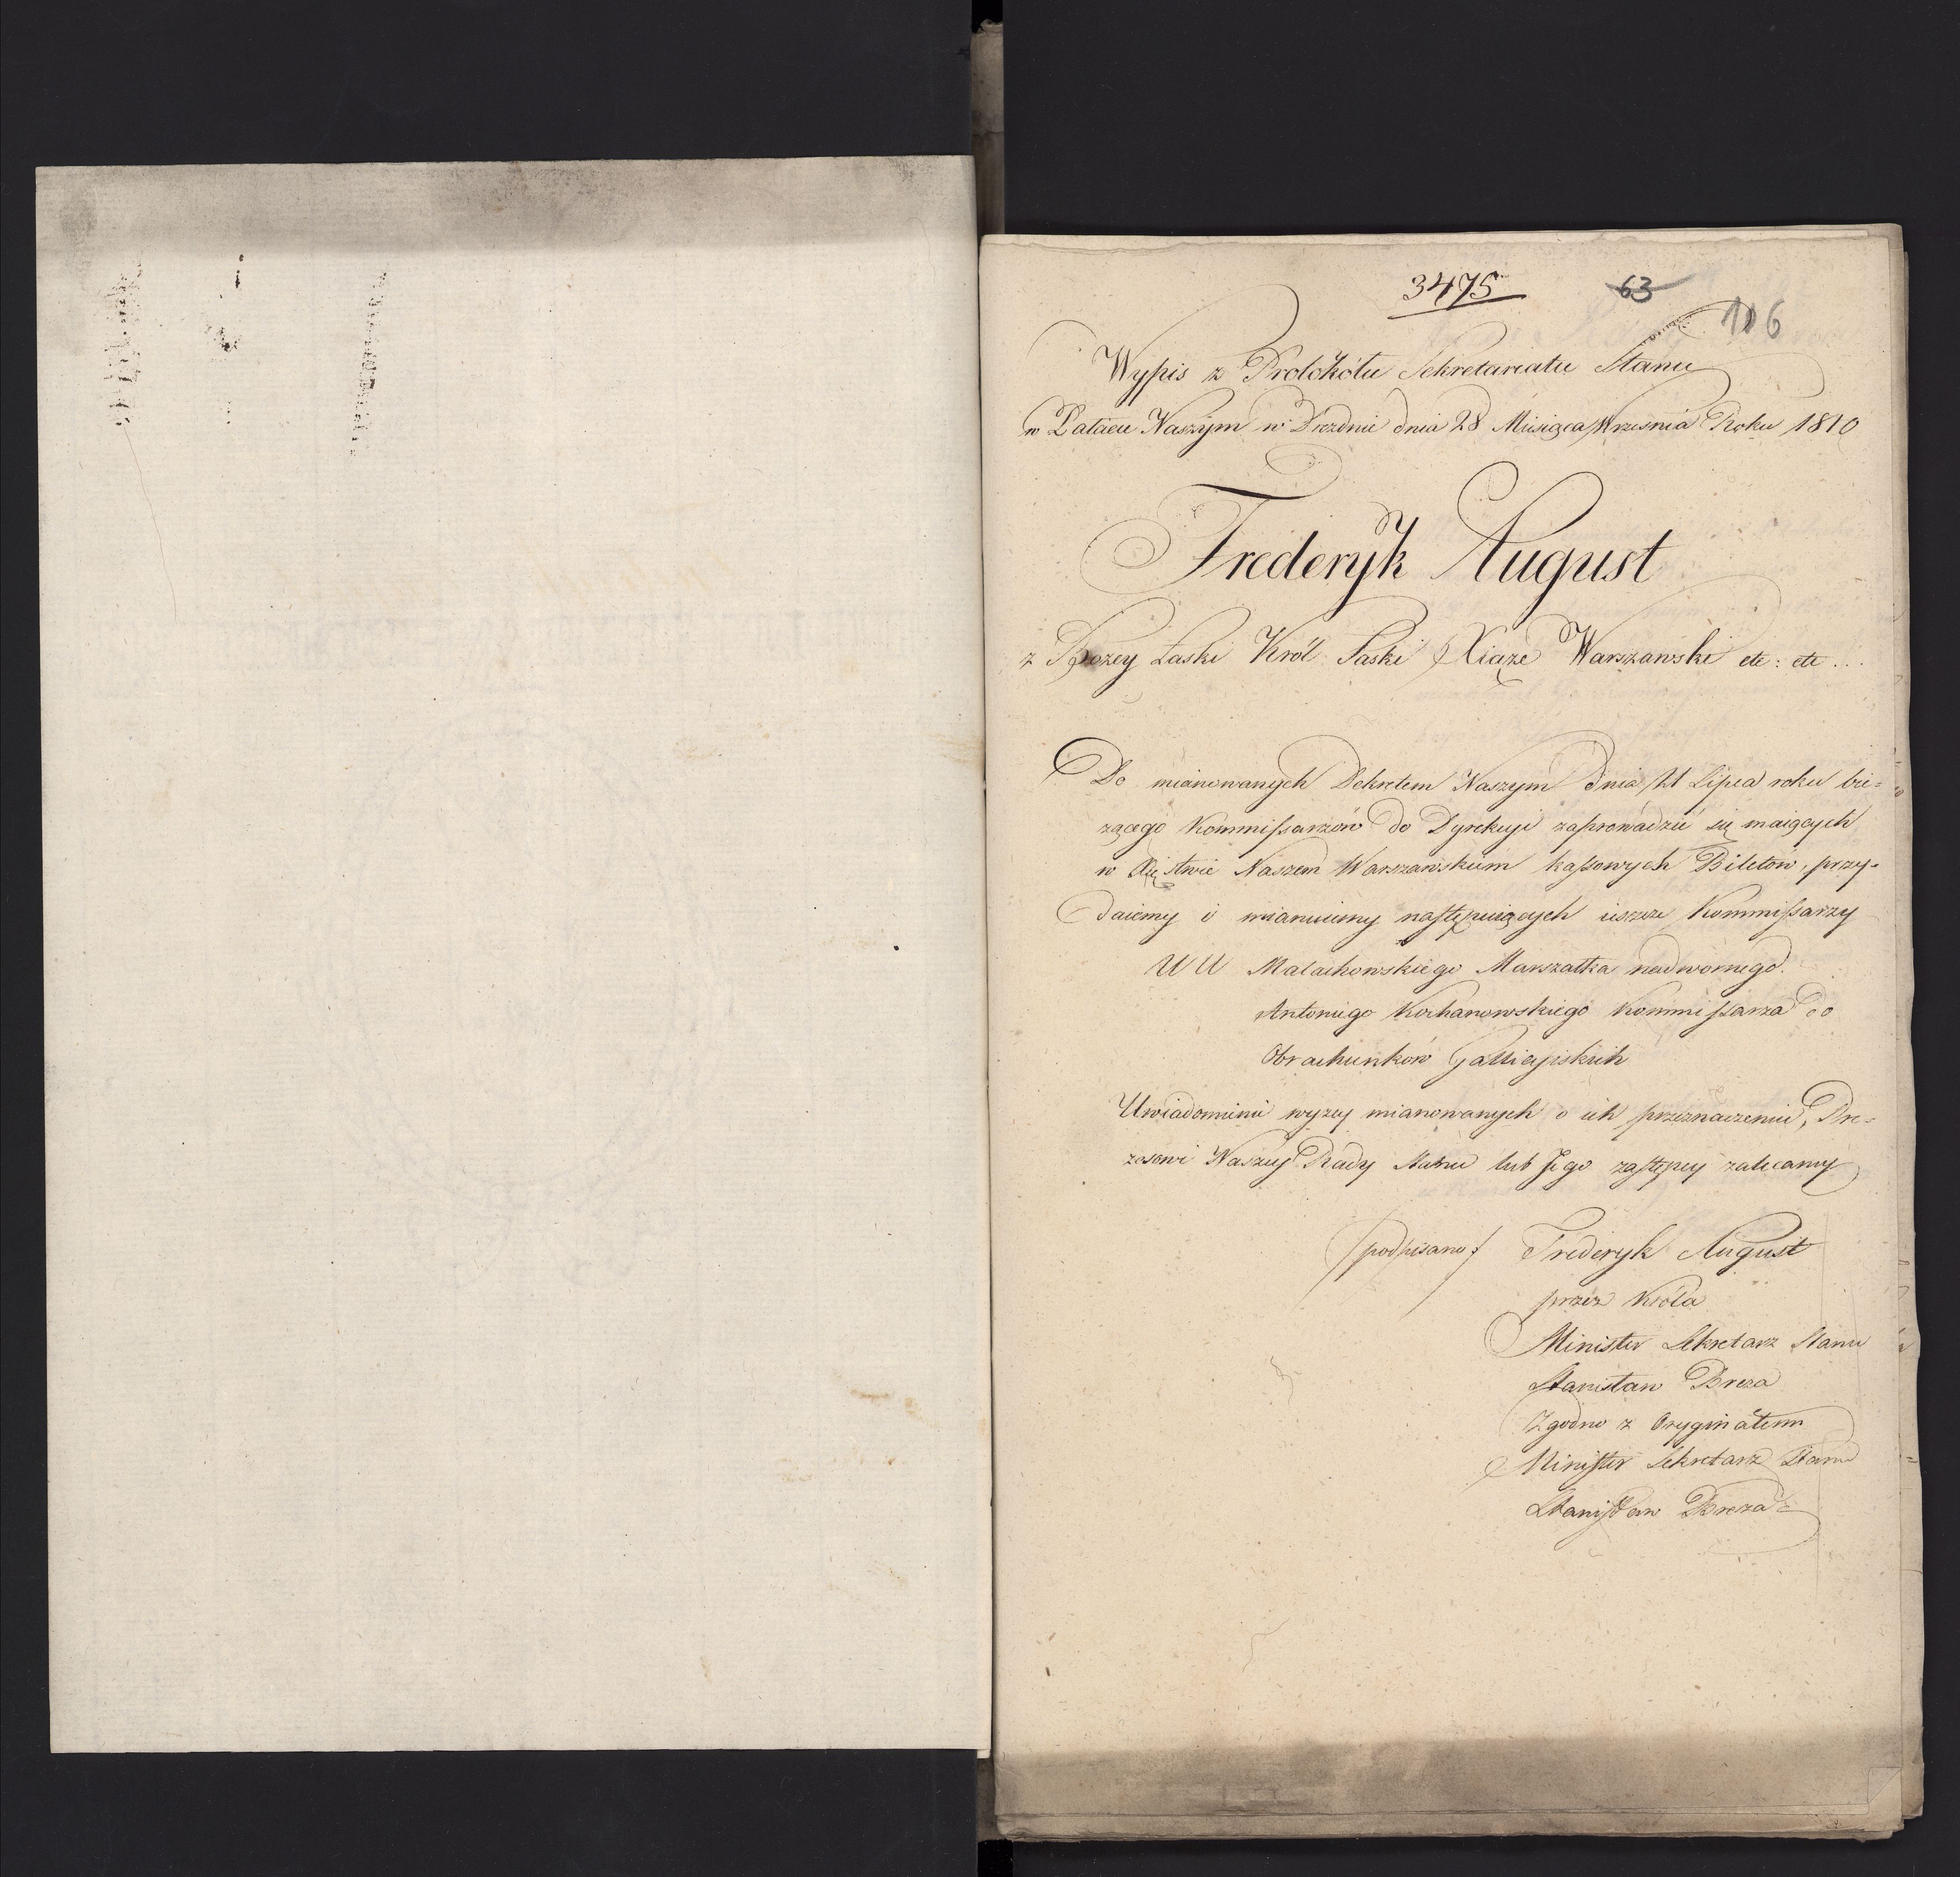 3475
63
106
Wypis z Protokółu Sekretariatu Stanu
w Pałacu Naszym w Dreznie dnia 28 Miesiąca Września Roku 1810
Frederyk August
z Bożey Łaski Król Saski Xiąże Warszawski etc: etc...
Do mianowanych Dekretem Naszym dnia 21 Lipca roku bie-
żącego Kommissarzów do Dyrekcyi zaprowadzić się maiących
w Xięstwie Naszem Warszawskiem kassowych Biletów, przy-
daiemy i mianuiemy następuiących ieszcze Kommissarzy
UU Małachowskiego Marszałka nadwornego.
Antoniego Kochanowskiego Kommissarza do
Obrachunków Gallicyiskich
Uwiadomienie wyżey mianowanych o ich przeznaczeniu, Pre-
zesowi Naszey Rady Stanu lub Jego zastępcy zalecamy
/podpisano/ Frederyk August
przez Króla
Minister Sekretarz Stanu
Stanisław Breza
Zgodno z Oryginałem
Minister Sekretarz Stanu
Stanisław Breza